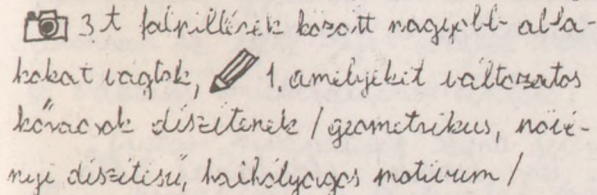 3. t falpillérek között nagyobb abla-
kokat vágtak, 1. amelyeket változatos
kőrácsok díszítenek / geometrikus, növé-
nyi díszítésű, halhólyagos motívum /